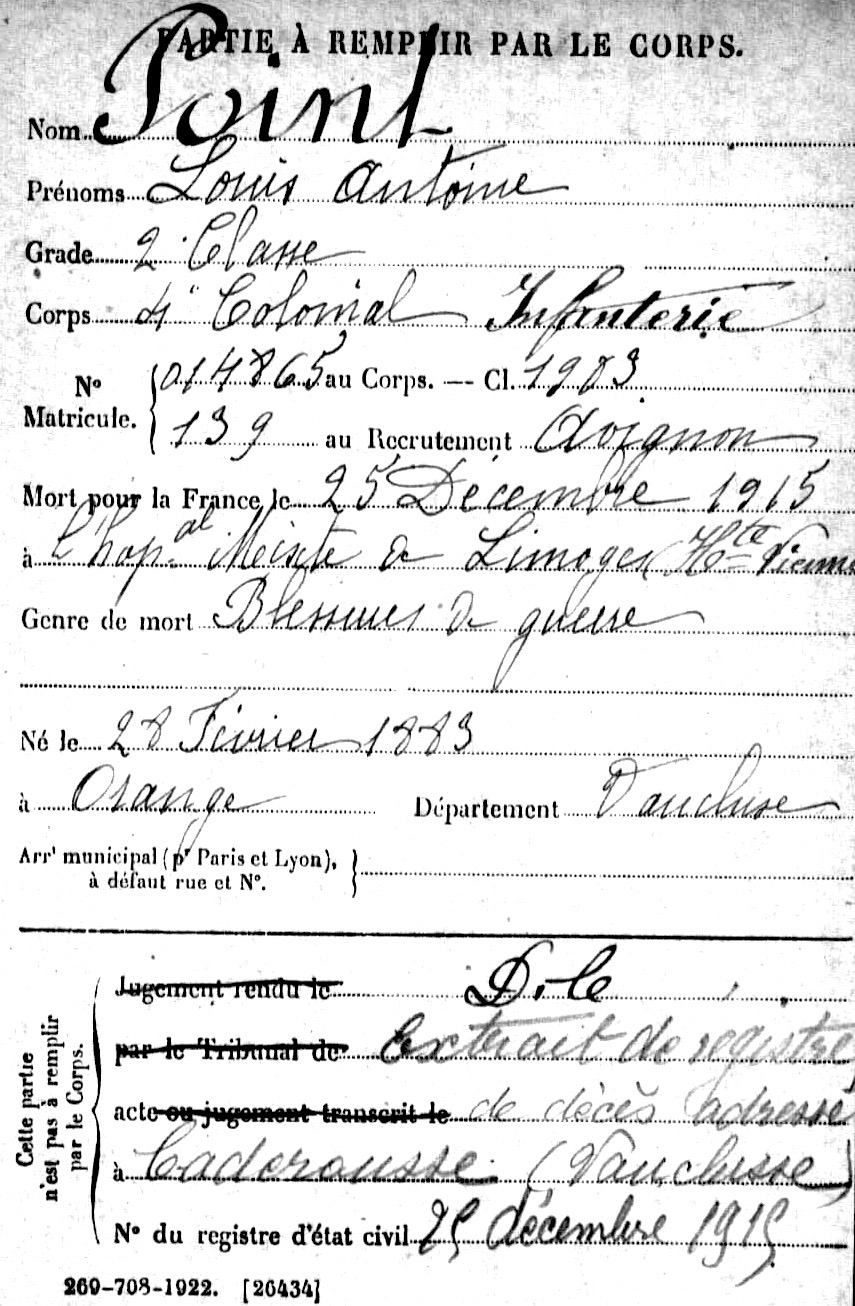 PARTIE À REMPLIR PAR LE CORPS.
Nom Point
Prénoms Louis Antoine
Grade 2e Classe
Corps 4e Colonial Infanterie
No Matricule. 014865 au Corps. — Cl. 1903
139 au Recrutement Avignon
Mort pour la France le 25 Décembre 1915
à l'hop.al Mixte de Limoges (Hte Vienne
Genre de mort Blessures de guerre
Né le 28 Février 1883
à Orange Département Vaucluse
Arrt municipal (pr Paris et Lyon),
à défaut rue et N°.
Cette partie n'est pas à remplir par le Corps.
Jugement rendu le D. le
par le Tribunal de Extrait de registre
acte ou jugement transcrit le de décès adressé
à Caderousse (Vaucluse)
N° du registre d'état civil 25 décembre 1915
269-708-1922. [26434]